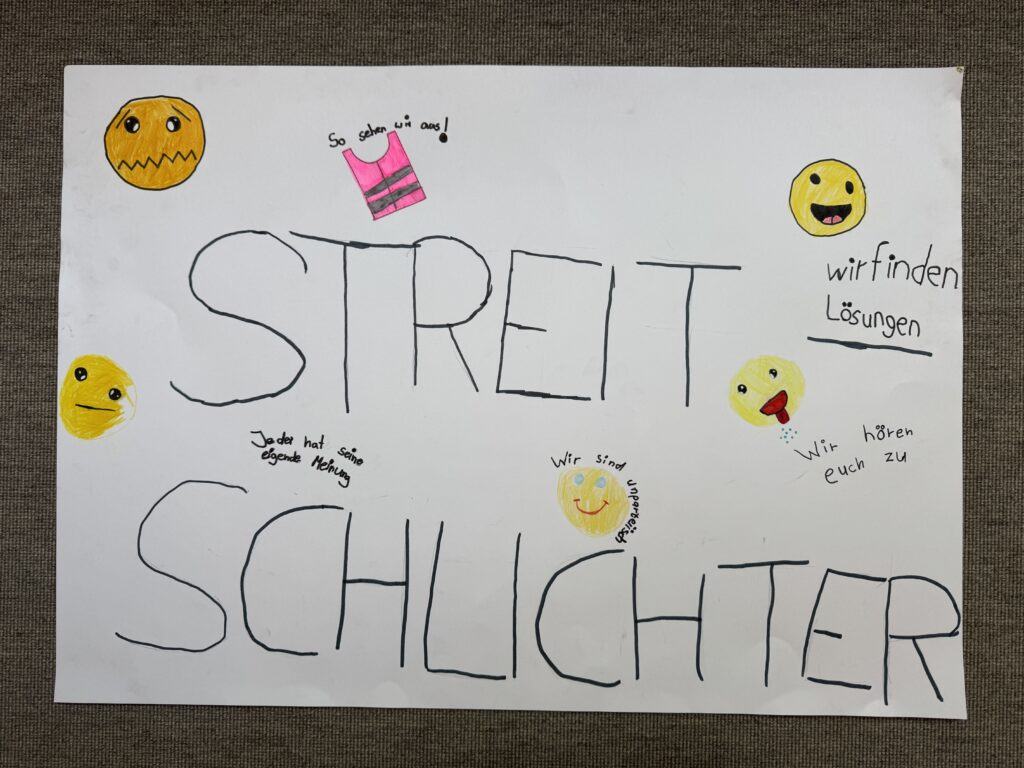 So sehen wir aus!
STREIT
wir finden
Lösungen
Jeder hat seine
eigende Meinung
Wir sind unparteiisch
Wir hören
euch zu
SCHLICHTER